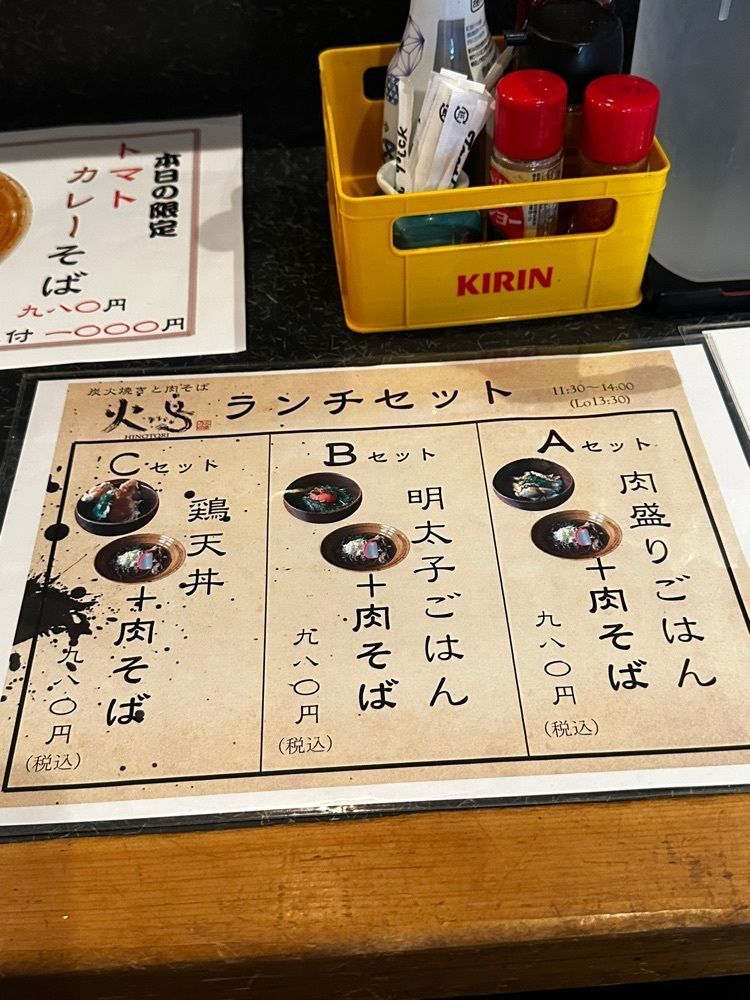 本日の限定
トマト
カレーそば
九八〇円
付 一〇〇〇円
KIRIN
炭火焼きと肉そば
火鳥
HINOTORI
ランチセット
11:30～14:00
(Lo13:30)
Aセット
肉盛りごはん
+肉そば
九八〇円
(税込)
Bセット
明太子ごはん
+肉そば
九八〇円
(税込)
Cセット
鶏天丼
+肉そば
九八〇円
(税込)